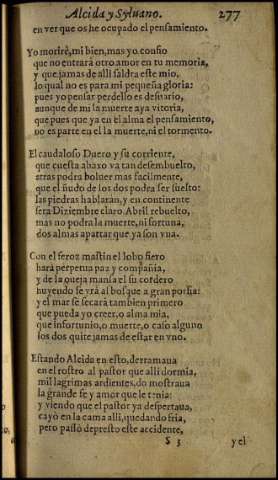 Alcida y Syluano. 277
en ver que os he ocupado el pensamiento.
Yo morirè, mi bien, mas yo confio
que no entrarà otro amor en tu memoria,
y que jamas de alli saldra este mio,
lo qual no es para mi pequeña gloria:
pues yo pensar perdello es desuario,
aunque de mi la muerte aya vitoria,
que pues que ya en el alma el pensamiento,
no es parte en el la muerte, ni el tormento.
El caudaloso Duero y su corriente,
que cuesta abaxo va tan desembuelto,
atras podra boluer mas facilmente,
que el ñudo de los dos podra ser suelto:
las piedras hablaràn, y en continente
sera Diziembre claro, Abril rebuelto,
mas no podra la muerte, ni fortuna,
dos almas apartar que ya son vna.
Con el feroz mastin el lobo fiero
harà perpetua paz y compañia,
y de la oueja mansa el su cordero
huyendo se vrà al bosque a gran porfia:
y el mar se secarà tambien primero
que pueda yo creer, o alma mia,
que infortunio, o muerte, o caso alguno
los dos quite jamas de estar en vno.
Estando Alcida en esto, derramaua
en el rostro al pastor que alli dormia,
mil lagrimas ardientes, do mostraua
la grande fe y amor que le tenia:
y viendo que el pastor ya despertaua,
cayò en la cama alli, quedando fria,
pero passò de presto este accidente,
S 3 y el